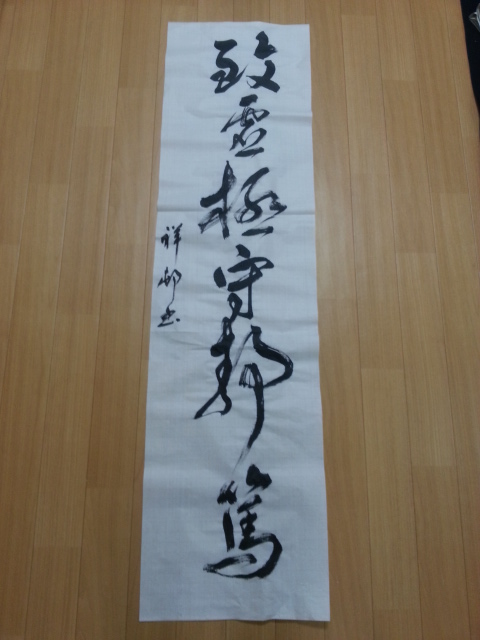 致虚極守靜篤
祥邨书